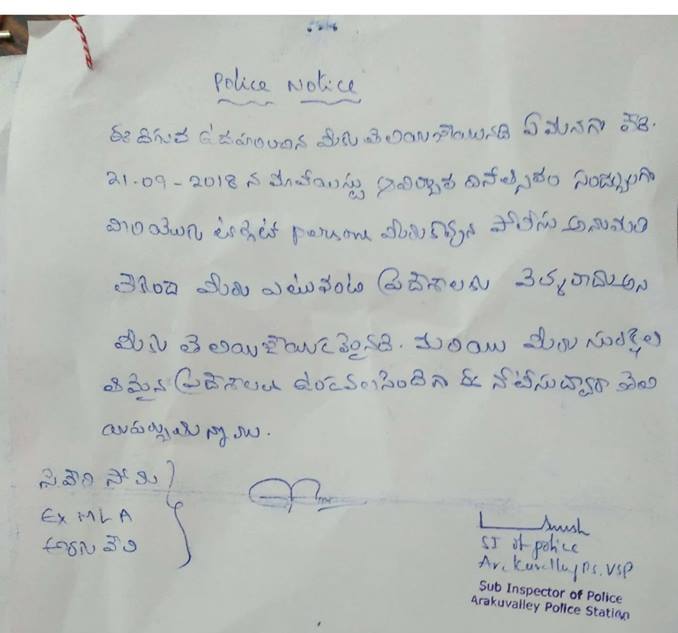 Police Notice
ఈ దిగువ ఉదహరించిన మీకు తెలియజేయునది ఏమనగా తేది.
21-09-2018 న మావోయిస్టు ఆవిర్భావ దినోత్సవం సందర్భంగా
వారి యొక్క టార్గెట్ persons మీరు కావున పోలీసు అనుమతి
లేకుండా మీరు ఎటువంటి ప్రదేశాలకు వెళ్ళరాదు అని
మీకు తెలియజేయడమైనది. మరియు మీరు సురక్షి
తమైన ప్రదేశాలలో ఉండవలసిందిగా ఈ నోటీసు ద్వారా తెలి
యపర్చుచున్నాము.
సివేరి సోమ
Ex MLA
అరకు వేలి
SI of police
Arakuvalley PS, VSP
Sub Inspector of Police
Arakuvalley Police Station